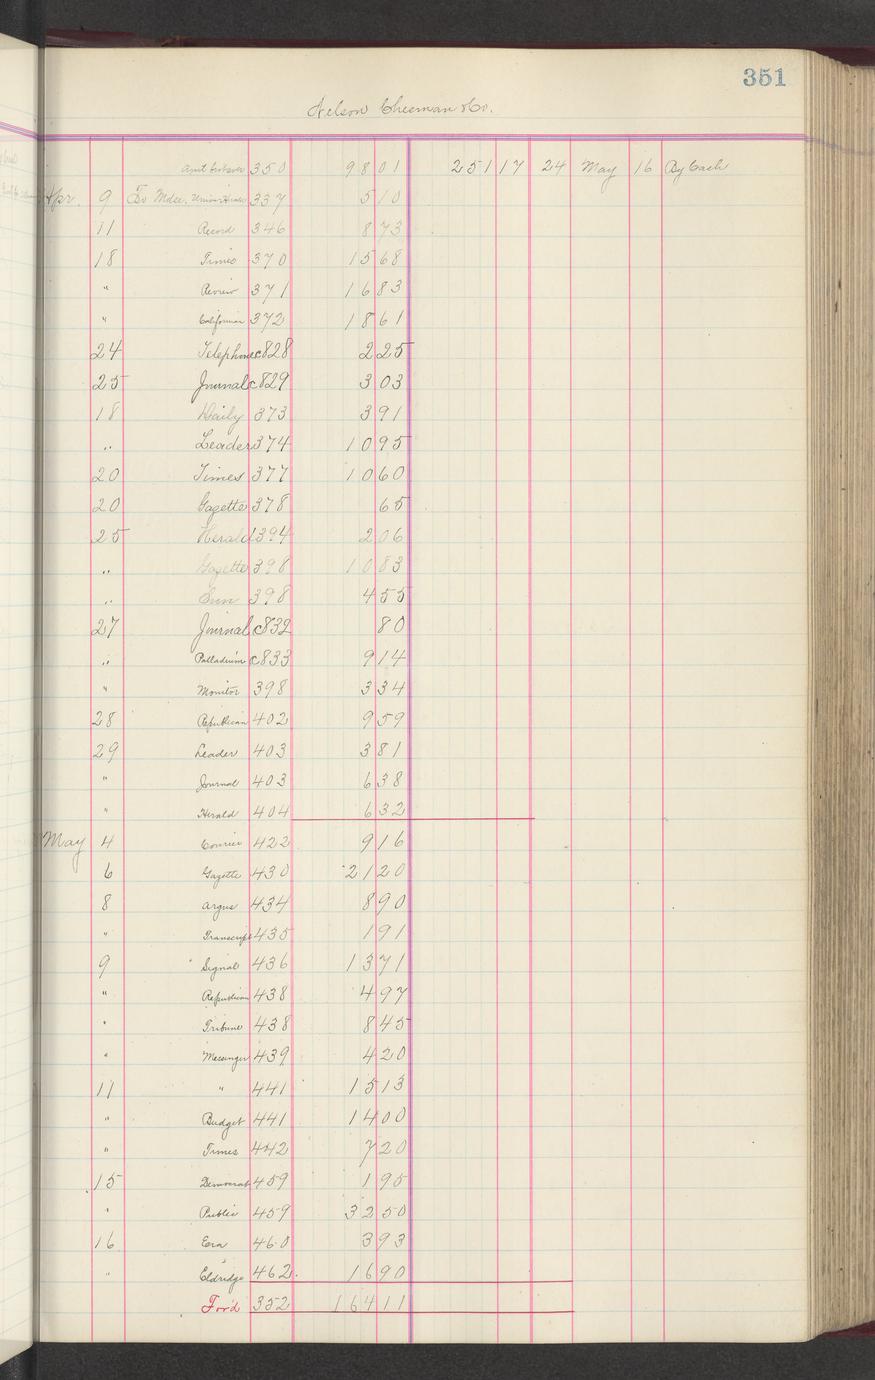 351
Nelson Chesman & Co.
Amt bro't over 350 98 01 251 17 24 May 16 By Cash
Apr. 9 To Mdse. Union & 337 5 10
11 Record 346 8 73
18 Times 370 15 68
" Review 371 16 83
" Californian 372 18 61
24 Telephone c828 2 25
25 Journal c829 3 03
18 Daily 373 3 91
" Leader 374 10 95
20 Times 377 10 60
20 Gazette 378 65
25 Herald 394 2 06
" Gazette 398 10 83
" Sun 398 4 55
27 Journal c832 80
" Palladium c833 9 14
" Monitor 398 3 34
28 Republican 402 9 59
29 Leader 403 3 81
" Journal 403 6 38
" Herald 404 6 32
May 4 Courier 422 9 16
6 Gazette 430 21 20
8 Argus 434 8 90
" Transcript 435 1 91
9 Signal 436 13 71
" Republican 438 4 97
" Tribune 438 8 45
" Messenger 439 4 20
11 " 441 15 13
" Budget 441 14 00
" Times 442 7 20
15 Democrat 459 1 95
" Public 459 32 50
16 Era 460 3 93
" Eldridge 462 16 90
For'd 352 164 11